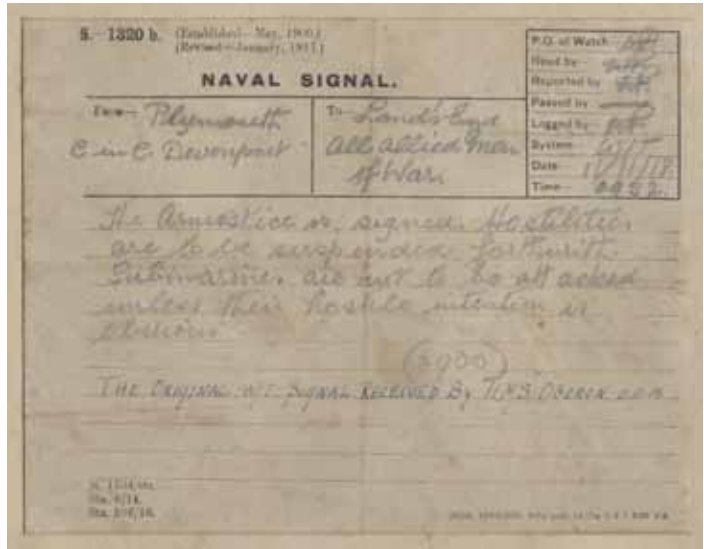 S. - 1320 b. (Established - May, 1900.)
(Revised - January, 1917.)
NAVAL SIGNAL.
P.O. of Watch
Read by
Reported by
Passed by
Logged by
System W/T
Date 11/11/18
Time 0952
From Plymouth
C in C. Devonport
To Land's End
All allied Men
of War.
The Armistice is signed. Hostilities
are to be suspended forthwith
Submarines are not to be attacked
unless their hostile intention is
obvious
(0900)
THE ORIGINAL W/T SIGNAL RECEIVED BY H.M.S.
Sta. 6/14.